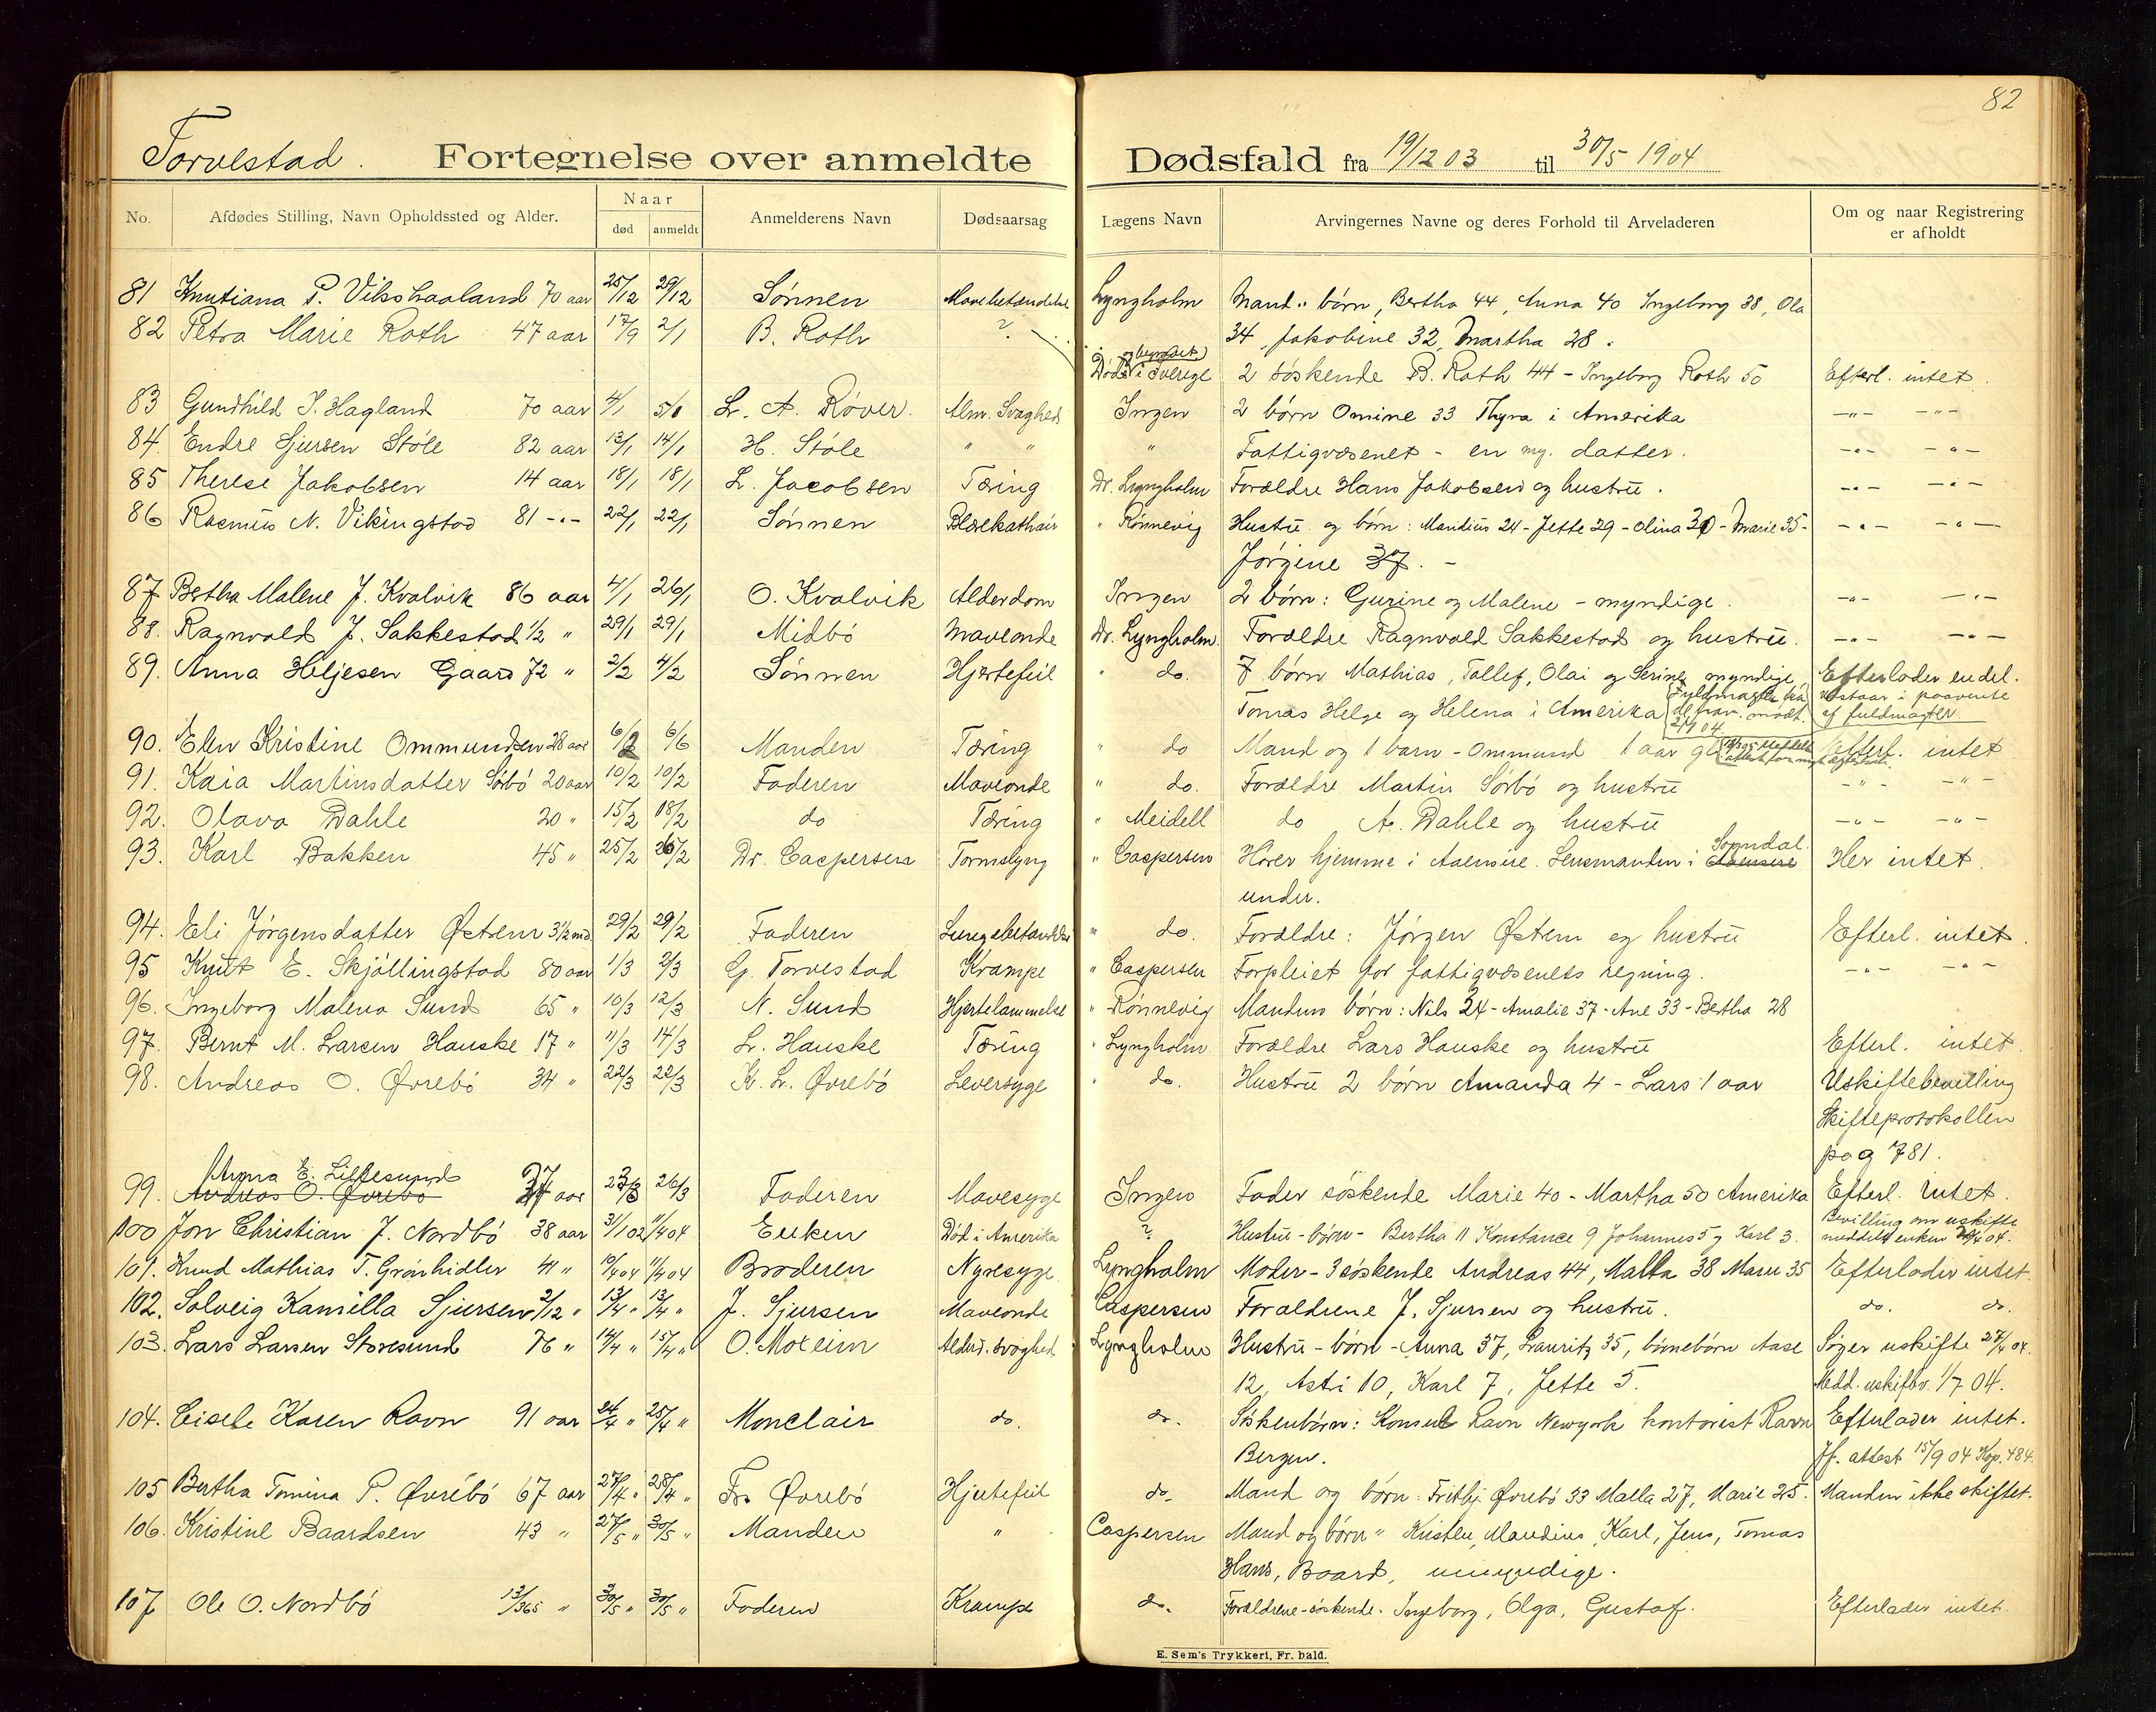 82
Torvestad. Fortegnelse over anmeldte Dødsfald fra 19/12 03 til 30/5 1904
No. Afdødes Stilling, Navn Opholdssted og Alder. Naar død anmeldt Anmelderens Navn Dødsaarsag Lægens Navn Arvingernes Navne og deres Forhold til Arveladeren Om og naar Registrering er afholdt
81 Knutiana P. Vikshaaland 70 aar 25/12 29/12 Sønnen Mavebetændelse Lyngholm Mand " børn, Bertha 44, Anna 40 Ingeborg 38, Ola
82 Petra Marie Roth 47 aar 17/9 2/1 B. Roth ? 34, Jakobine 32, Martha 28.
Død i Sverige 2 søskende B. Roth 44 - Ingeborg Roth 50 Efterl. intet.
83 Gundhild J. Hagland 70 aar 4/1 5/1 L. A. Røver. Alm. Svaghed Ingen 2 børn Omine 33 Thyra i Amerika -"- -"-
84. Endre Sjursen Støle 82 aar 13/1 14/1 H. Støle " " " Fattigvæsenet - en my. datter. -"- -"-
85 Therese Jakobsen 14 aar 18/1 18/1 L. Jacobsen Tæring Dr. Lyngholm Forældre Hans Jakobsen og hustru. -"- -"-
86 Rasmus N. Vikingstad 81 -"- 22/1 22/1 Sønnen Blærekathair " Rønnevig Hustru og børn: Mandius 24 - Jette 29 - Olina 30 - Marie 35 - -"- -"-
Jørgine 37. -
87 Bertha Malene J. Kvalvik 86 aar 4/1 26/1 O. Kvalvik Alderdom Ingen 2 børn: Gurine og Malene - myndige. -"- -"-
88. Ragnvald J. Sakkestad 1/2 " 29/1 29/1 Midbö Maveonde Dr. Lyngholm. Forældre Ragnvald Sakkestad og hustru. -"- -"-
89. Anna Heljesen Gaard 72 " 2/2 4/2 Sønnen Hjertefeil " do. 7 børn Mathias, Tollef, Olai og Serine myndige Efterlader en del.
Tomas Helge og Helena i Amerika i paavente af fuldmagter
90. Elen Kristine Ommundsen 28 aar 6/2 6/6 Manden Tæring " do Mand og 1 barn - Ommund 1 aar gl. Efterl. intet
91. Kaia Martinsdatter Sørbö 20 aar 10/2 10/2 Faderen Maveonde " do. Forældre Martin Sørbö og hustru -"- -"-
92. Olava Dahle 20 " 15/2 18/2 do Tæring " Meidell do A. Dahle og hustru -"- -"-
93. Karl Bakken 45 " 25/2 26/2 Dr. Caspersen Tarmslyng " Caspersen Hører hjemme i Aaensire. Lensmanden i Sogndal. Her intet.
under.
94. Eli Jørgensdatter Østrem 3 1/2 md. 29/2 29/2 Faderen Lungebetændelse " do. Forældre: Jørgen Østrem og hustru Efterl. intet.
95 Knut E. Skjøllingstad 80 aar 1/3 2/3 G. Torvestad Krampe " Caspersen Forpleiet for fattigvæsenets regning. -"- -"-
96. Ingeborg Malena Sund 65 " 10/3 12/3 N. Sund Hjertelammelse " Rønnevig Mandens børn: Nils 24 - Amalie 37 - Ane 33 - Bertha 28
97. Bernt M. Larsen Hauske 17 " 11/3 14/3 L. Hauske Tæring " Lyngholm Forældre Lars Hauske og hustru Efterl. intet.
98. Andreas O. Øvrebö 34 " 22/3 22/3 K. L. Øvrebö Leversyge " do. Hustru 2 børn Amanda 4 - Lars 1 aar Uskiftebevilling
Skifteprotokollen
pag 781.
Anna E. Lillesund
99. Andreas O. Øvrebö 37 aar 23/3 26/3 Faderen Mavesyge Ingen Fader søskende Marie 40 - Martha 50 Amerika Efterl. intet.
100 Jon Christian J. Nordbö 38 aar 31/1 02 11/4 04 Enken Død i Amerika ? Hustru - børn - Bertha 11 Konstance 9 Johannes 5 og Karl 3. Bevilling om uskifte meddelt enken
101. Knud Mathias T. Grönhidler 41 " 10/4 04 11/4 04 Broderen Nyresyge Lyngholm Moder - 3 søskende Andreas 44, Malla 38 Marie 35 Efterlader intet.
102. Solveig Kamilla Sjursen 2/12 " 13/4 " 13/4 " J. Sjursen Maveonde Caspersen Forældrene J. Sjursen og hustru. do. do.
103. Lars Larsen Storesund 76 " 14/4 " 15/4 " O. Moxeim Alderd. svaghed Lyngholm Hustru - børn - Anna 37, Lauritz 35, børnebørn Aase Søger uskifte 27/4 04.
12, Astri 10, Karl 7, Jette 5. Medd. uskiftbv. 1/7 04.
104. Cisele Karen Ravn 91 aar 24/4 " 25/4 " Monclair do. do. Søskenbørn: Konsul Ravn Newyork kontorist Ravn Efterlader intet.
Bergen. Jf. attest 15/9 04 Kop. 484.
105 Bertha Tomina P. Øvrebö 67 aar 27/4 " 28/4 " Fr. Øvrebö Hjertefeil do. Mand og børn: Frithj. Øvrebö 33 Malla 27, Marie 25. Manden ikke skiftet.
106. Kristine Baardsen 43 " 27/5 " 30/5 " Manden " Caspersen Mand og børn " Kristen, Mandius, Karl, Jens, Tomas
Hans, Baard, umyndige.
107 Ole O. Nordbö 13/365 " 30/5 " 30/5 " Faderen Krampe do. Forældrene - søskende. Ingeborg, Olga, Gustaf. Efterlader intet.
E. Sem's Trykkeri, Fr. hald.